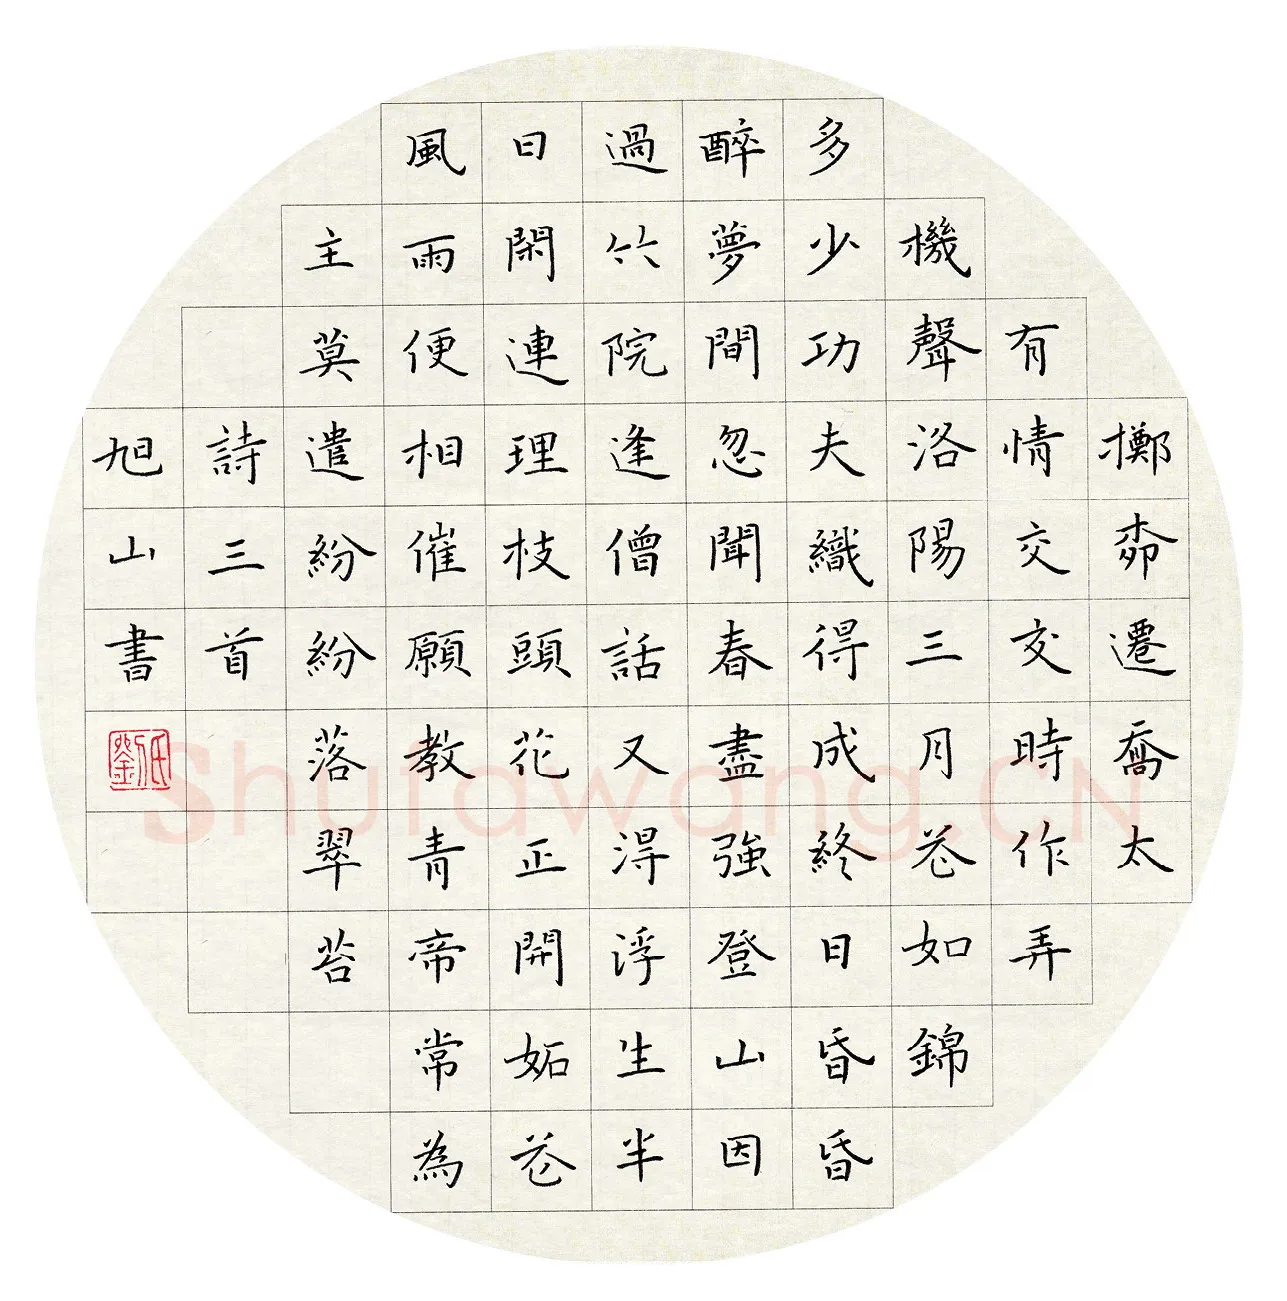 擲柳遷喬太
有情交交時作弄
機聲洛陽三月花如錦
多少功夫織得成終日昏昏
醉夢間忽聞春盡強登山因
過竹院逢僧話又得浮生半
日閑連理枝頭花正開妬花
風雨便相催願教青帝常為
主莫遣紛紛落翠苔
詩三首
旭山書
劉氏
Shufawang.CN